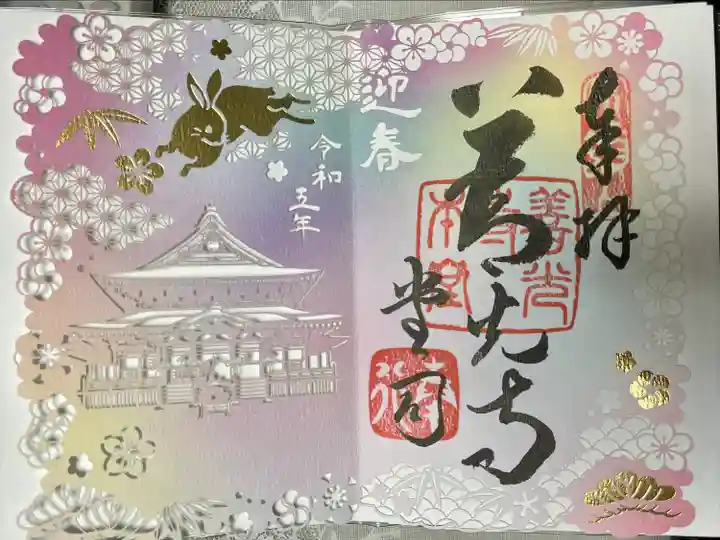 奉拝
善光寺
堂司
善光
寺
本堂
迎春
令和
五年